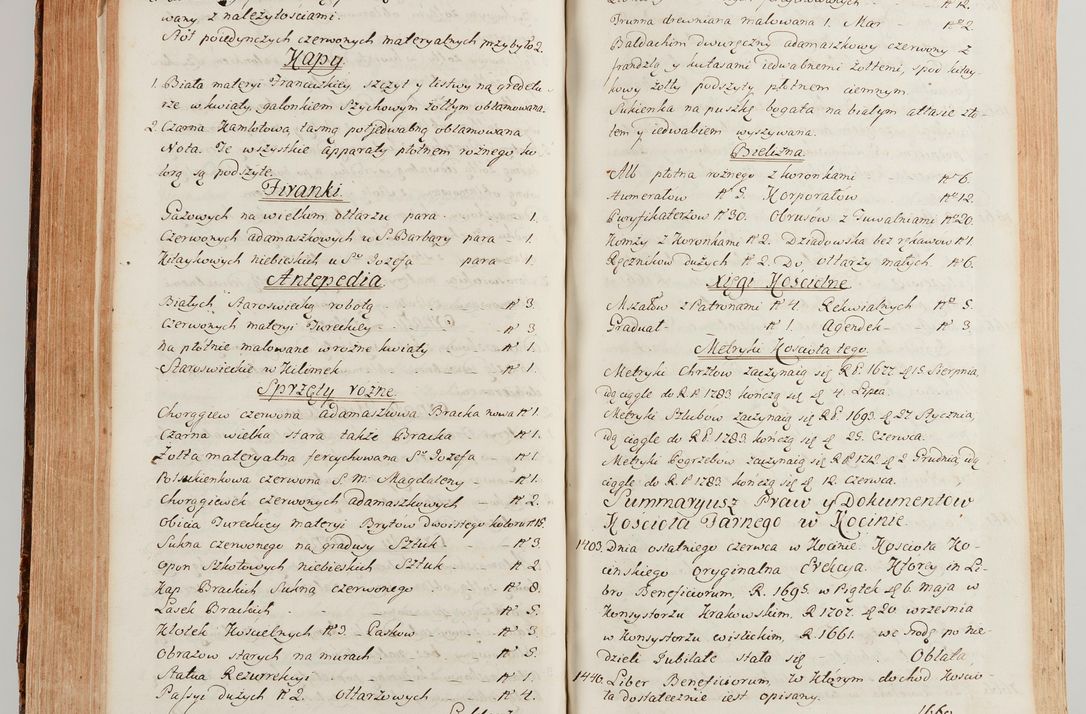 wany z należytosciami.
Stół poiedynczych czerwonych materyalnych przybyło 2.
Kapy
1. Biała materyi Francuzkiey szczyt y listwy na gredetu-
rze w kwiaty galonkiem Szychowym żołtym obłamowana.
2. Czarna Kamlotowa, tasmą połjedwabną obłamowana
Nota. Ze wszystkie apparaty płotnem rożnego ko-
lorą są podszyte.
Firanki.
Gazowych na wielkim ołtarzu para. 1.
Czerwonych adamaszkowych u S. Barbary para – 1.
Kitaykowych niebieskich u Sgo Jozefa para – 1.
Antepedia
Białych Staroswiecką robotą – No 3.
Czerwonych materyi Tureckiey – No 3
Na płotnie malowane w rożne kwiaty No 1.
Staroswieckie w Kilimek – No 1.
Sprzęty rożne.
Chorągiew czerwona adamaszkowa Bracka nowa No 1.
Czarna wielka stara także Bracka – No 1.
Żołta materyalna fercychowana Sgo Jozefa – No 1
Połsukienkowa czerwona S. M. Magdaleny – No 1.
Chorągiewek czerwonych adamaszkowych – No 2.
Obicia Tureckiey materyi Brytow Dwoistego koloru No 18.
Sukna czerwonego na gradusy Sztuk – No 3.
Opon Szkotowych niebieskich Sztuk – No 2.
Kap Brackich Sukna czerwonego – No 8.
Lasek Brackich – No 5.
Kłotek Koscielnych No 3. Paskow – No 3.
Obrazow starych na murach – No 5.
Statua Rezurrekcyi – No 1.
Passyi dużych No 2. Ołtarzowych – No 4.
No 12.
Trunna drewniana malowana 1. Mar – No 2.
Baldachim dwuręczny adamaszkowy czerwony z
frandzlą y kutasami iedwabnemi żołtemi, spod kitay-
kowy żołty podszyty płotnem ciemnym.
Sukienka na puszkę bogata na białym attasie zło-
tem y iedwabiem wyszywana.
Bielizna.
Alb płotna rożnego z koronkami No 6.
Humerałow No 5. Korporałow No 12.
Puryfikaterzow No 30. Obrusow z Tuwalniami No 20.
Komży z Koronkami No 2. Dziadowska bez rękawow No 1
Ręcznikow dużych No 2. Do ołtarzy małych No 6.
Xięgi Koscielne
Mszałow z Patronami No 4. Rekwialnych No 5.
Graduał – No 1. Agendek – No 3.
Metryki Koscioła tego.
Metryki Chrztow zaczynaią się R.P. 1677. d 15 Sierpnia,
idą ciągle do R.P. 1783. kończą się d 4. Lipca.
Metryki Szlubow zaczynaią się R.P. 1693. d 27 Stycznia,
idą ciągle do R.P. 1783. kończą się d 25. Czerwca.
Metryki Pogrzebow zaczynaią się R.P. 1712 d 2 Grudnia, idą
ciągle do R.P. 1783 kończą się d 12. Czerwca.
Summaryusz Praw y Dokumentow
Koscioła Farnego w Kocinie.
1403. Dnia ostatniego czerwca w Kocinie. Koscioła Ko-
cinskiego oryginalna Erekcya. Ktora in Li-
bro Beneficiorum, R. 1695. w Piątek d 6. Maja w
Konsystorzu Krakowskim, R. 1707. d 20 wrzesnia
w Konsystorzu wislickim, R. 1661. we srodę po nie-
dzieli Jubilate stała się – Oblata
1440. Liber Beneficiorum, w którym dochod koscio-
ła dostatecznie iest opisany.
1660.